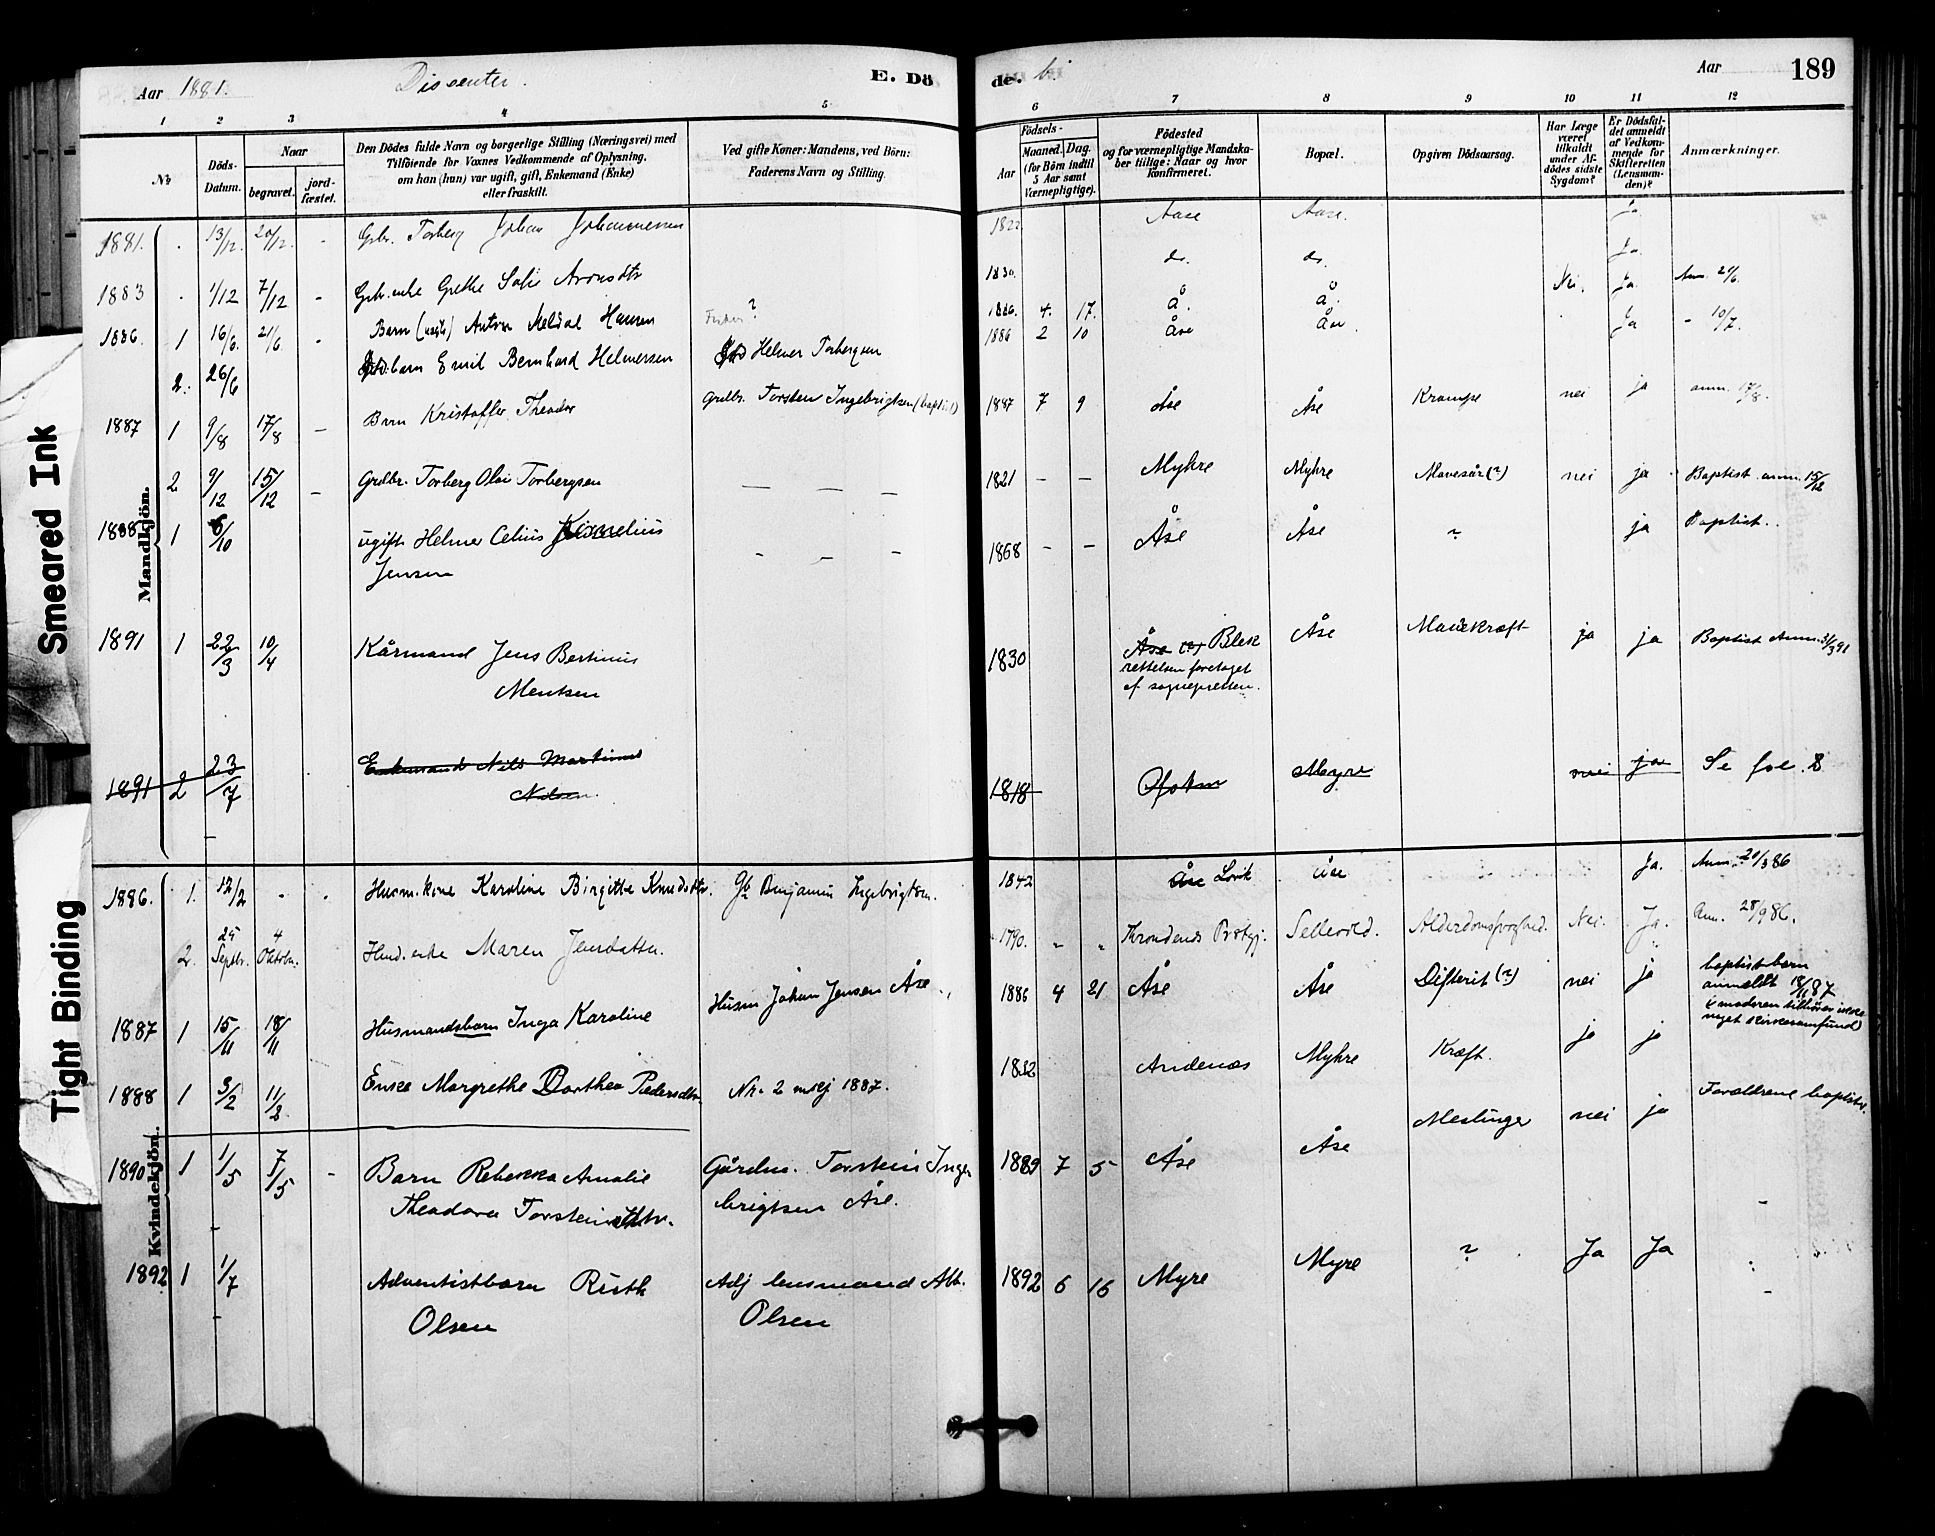 Aar 1881. Dissenter. E. Dö
de. Aar 189
1 2 3 4 5
6 7 8 9 10 11 12
No
Döds-Datum.
Naar
begravet.
jord-fæstet.
Den Dödes fulde Navn og borgerlige Stilling (Næringsvei) med
Tilföiende for Voxnes Vedkommende af Oplysning,
om han (hun) var ugift, gift, Enkemand (Enke)
eller fraskilt.
Ved gifte Koner: Mandens, ved Börn:
Faderens Navn og Stilling.
Födsels-
Aar
Maaned. Dag.
(for Börn indtil
5 Aar samt
Værnepligtige).
Födested
og for værnepligtige Mandska-
ber tillige: Naar og hvor
konfirmeret.
Bopæl.
Opgiven Dödsaarsag.
Har Læge
været
tilkaldt
under Af-
dödes sidste
Sygdom?
Er Dödsfal-
det anmeldt
af Vedkom-
mende for
Skifteretten
(Lensman-
den)?
Anmærkninger.
Smeared Ink
Tight Binding
Mandkjön.
1881. 13/12. 20/12. - Gbr. Torberg Johan Johannessen 1822 Aase Aase. Ja
1883 1/12 7/12 - Gbr. enke Grethe Sofie Aronsdtr 1830. do. do. Ja.
1886. 1 16/6. 21/6 - Barn Anton Meldal Hansen ? 1886. 4. 17. Å. Å. Nei. Ja. Anm. 21/6.
2. 26/6 barn Emil Bernhard Helmersen Helmer Torbergsen 1886 2 10 Åse Åse. Ja - 10/7.
1887 1 9/8 17/8 - Barn Kristoffer Theodor Grdbr. Torsten Ingebrigtsen (baptist) 1887 7 9 Åse Åse Krampe nei ja anm. 17/8.
2 9/12 15/12 - Grdbr. Torberg Olai Torbergsen — — — 1821 - - Myhre Myhre Mavesår (?) nei ja Baptist anm. 15/12
1888 1 /10 ugift Helmer Celius Kornelius - - - 1868 - - Åse Åse ? ja Baptist.
Jensen
1891 1 22/3 10/4 Kårmand Jens Bertinus 1830 Åse Blek Åse Mavekræft ja ja Baptist Anm. 31/3 91
Mentsen
rettelsen foretaget
af sognepresten.
1891 2 23/7 Enkemand Nils Martinus 1818 Myre nei ja Se fol. 8
Nilsen.
Kvindekjön.
1886. 1. 12/2 - . Husm. kone Karoline Birgitte Knudsdtr. Gb Benjamin Ingebrigtsen. 1842 Åse Lovik Åse Ja. Anm. 21/3 86
2. 25 Septbr. 4 Oktober. enke Maren Jensdatter 1790. „ „ Trondenes Prstgj. Selleviel. Alderdomssvaghed. Nei. Ja. Anm. 28/9 86.
1887 1 15/11 18/11 Husmandsbarn Inga Karoline Husm Johan Jensen Åse. 1886 4 21 Åse Åse Difterit (?) nei ja baptistbarn
anmeldt 18/11 87
(moderen tilhører ikke
noget kirkesamfund)
1888 1 3/2 11/2 Enke Margrethe Dorthea Pedersdtr Nr. 2 m.kj 1887. 1832 Andenæs Myhre Kræft. ja ja
1890 1 1/5 7/5 - Barn Rebekka Amalie Gårdm. Torstein Inge- 1889 7 5 Åse Åse Meslinger nei ja Forældrene baptister.
Theodora Torsteinsdtr. brigtsen Åse.
1892 1 1/7 Adventistbarn Ruth Adj lensmand Alb. 1892 6 16 Myre Myre ? Ja Ja
Olsen Olsen